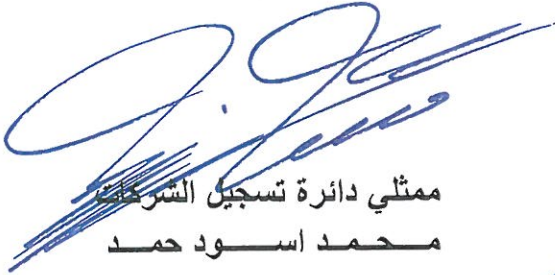 ممثلي دائرة تسجيل الشركات
محمد اسود حمد